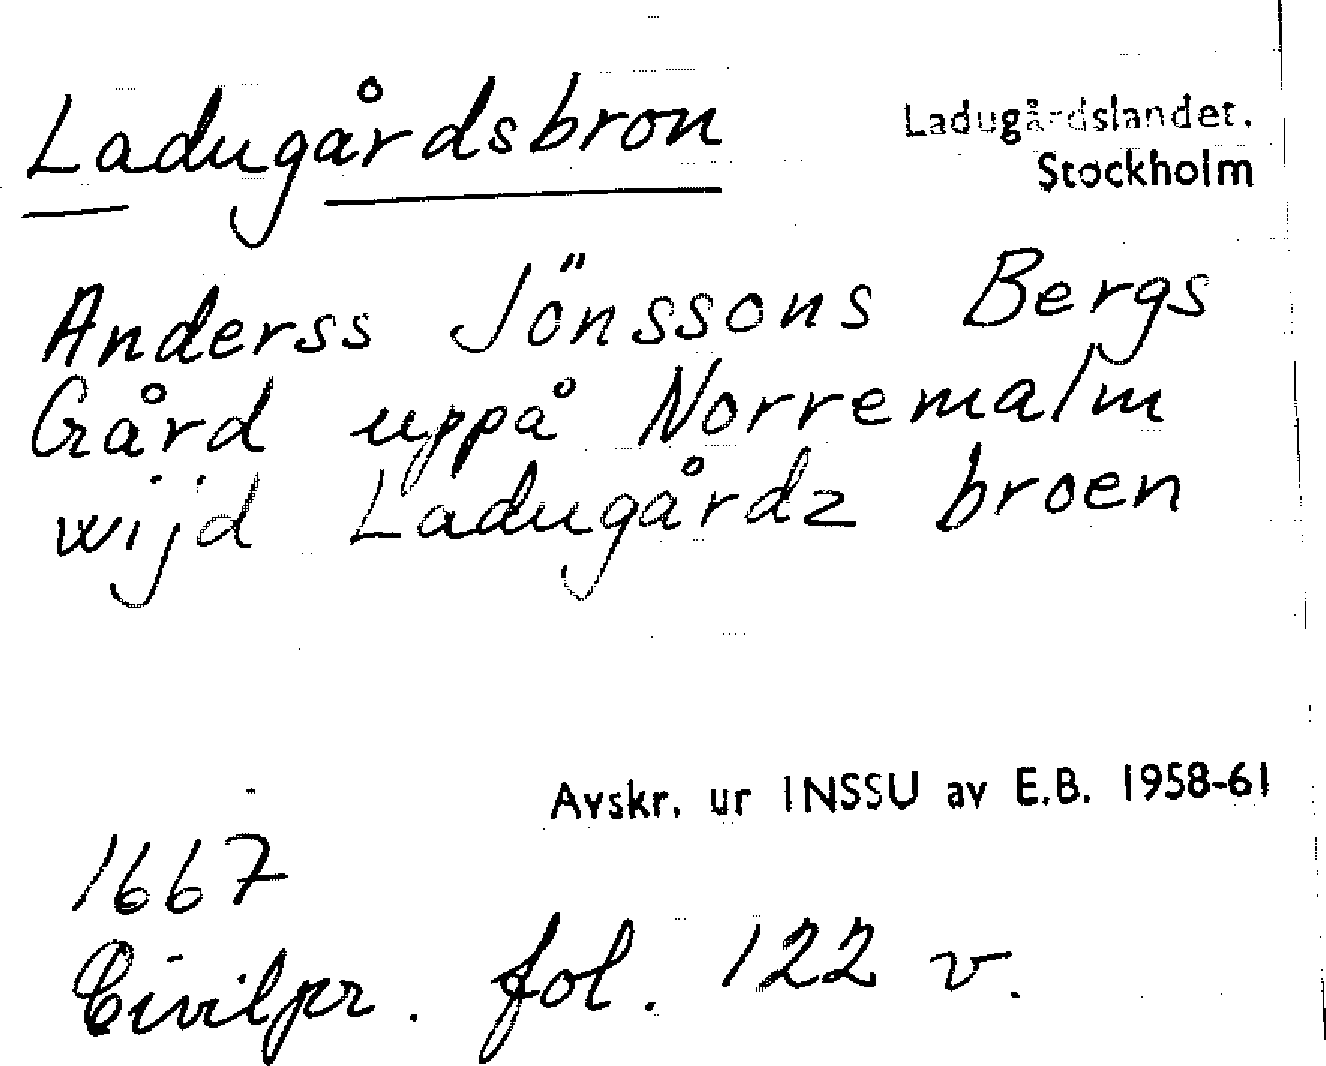 Ladugårdsbron
Ladugårdslandet.
Stockholm
Anderss Jönssons Bergs
Gård uppå Norremalm
wijd Ladugårdz broen
Avskr. ur INSSU av E.B. 1958-61
1667
Civilpr. fol. 122 v.